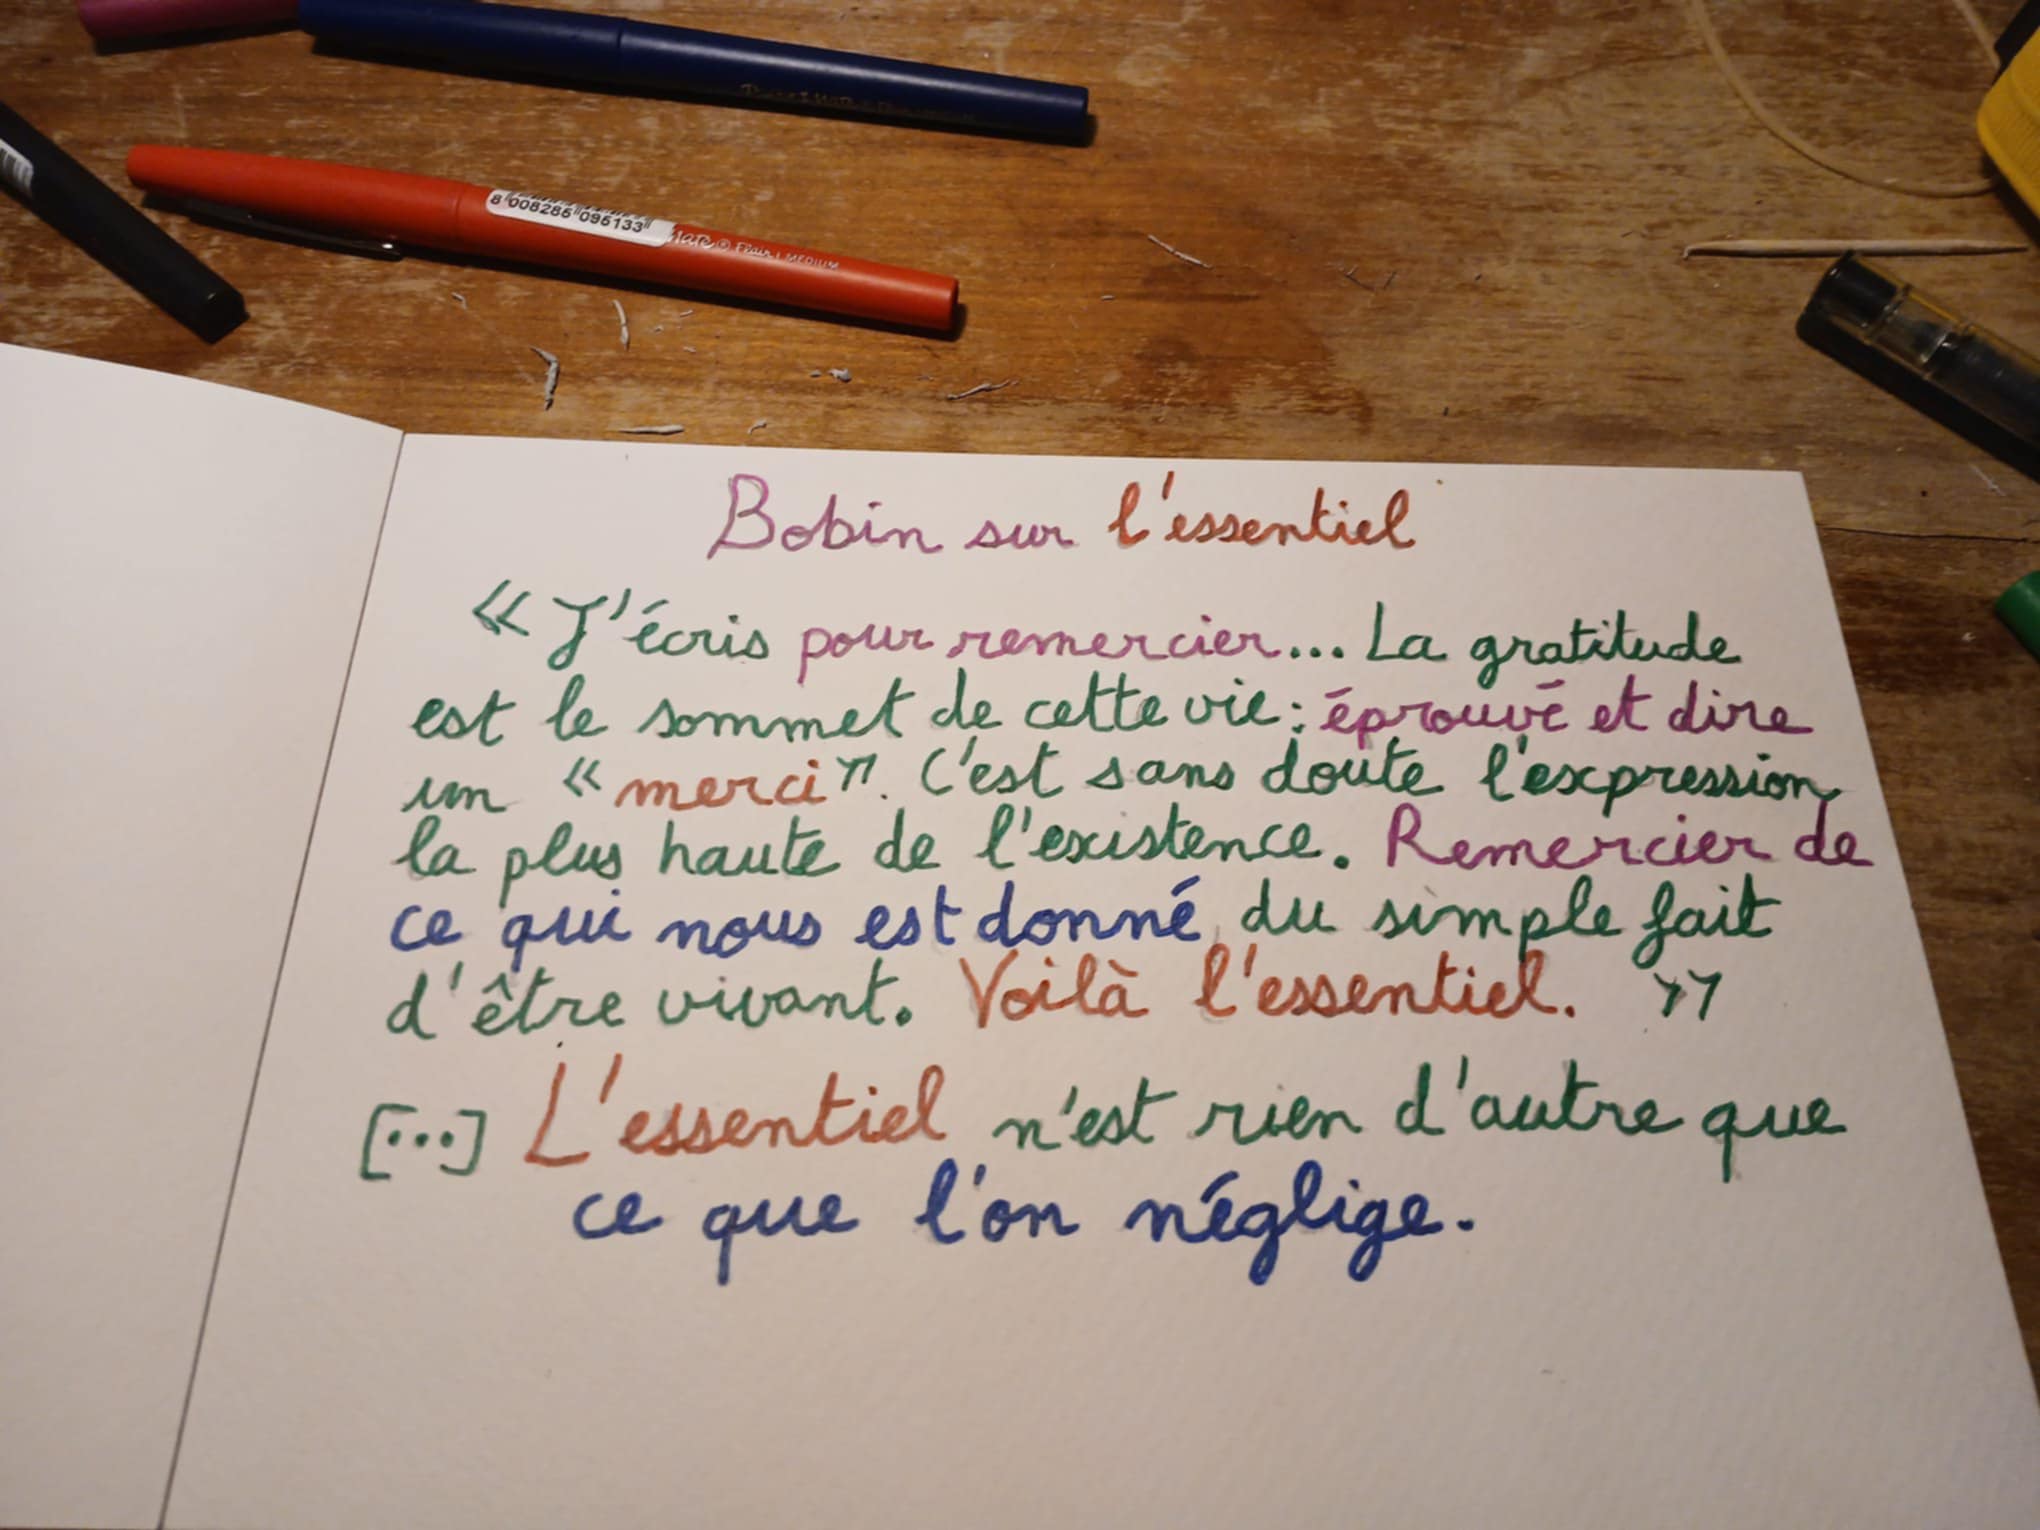 8 008285 095133
Mate ® Flair | MEDIUM
Bobin sur l'essentiel
« J'écris pour remercier... La gratitude
est le sommet de cette vie : éprouvé et dire
un « merci ». C'est sans doute l'expression
la plus haute de l'existence. Remercier de
ce qui nous est donné, du simple fait
d'être vivant. Voilà l'essentiel. »
[...] L'essentiel n'est rien d'autre que
ce que l'on néglige.